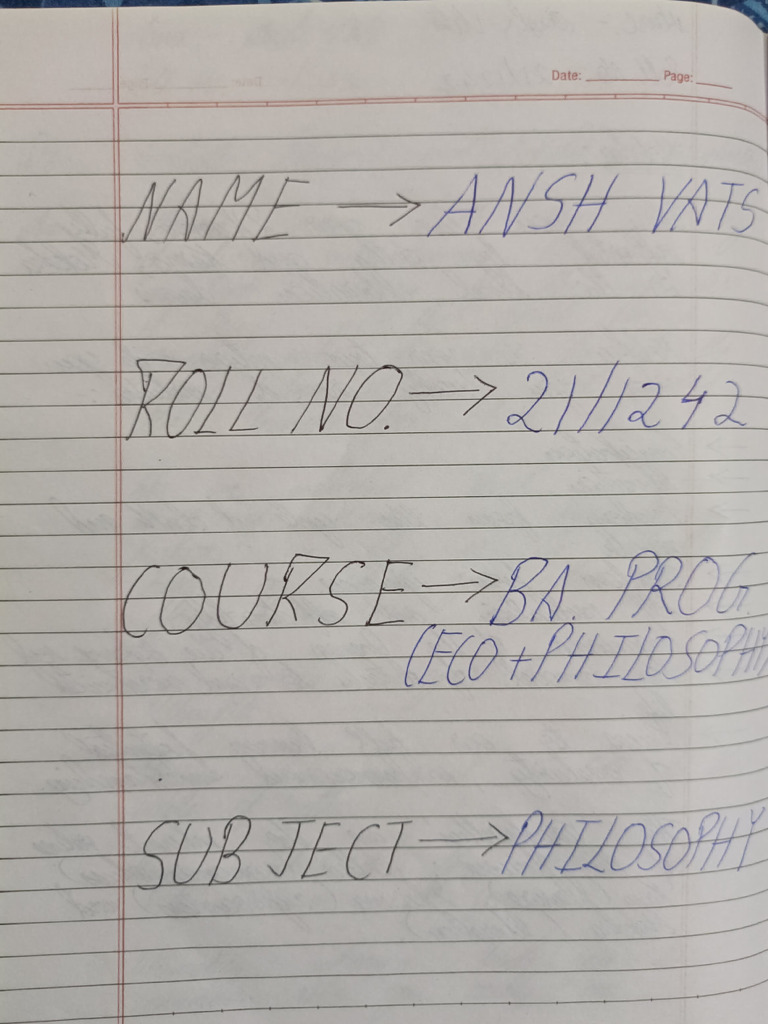 Date: ________ Page: ____
NAME → ANSH VATS
ROLL NO. → 21/1242
COURSE → BA. PROG
(ECO + PHILOSOPHY)
SUBJECT → PHILOSOPHY